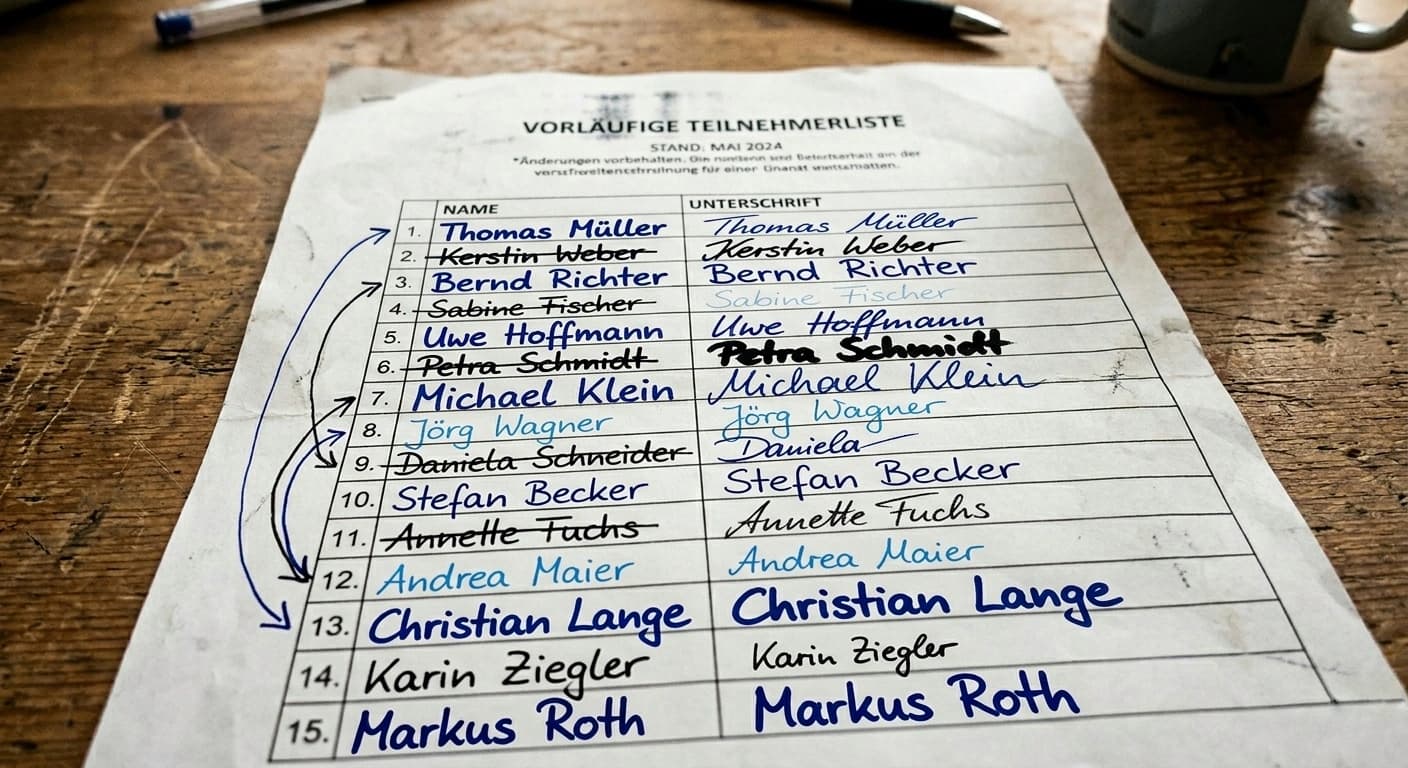 VORLÄUFIGE TEILNEHMERLISTE
STAND: MAI 2024
*Änderungen vorbehalten. der
für einer
NAME UNTERSCHRIFT
1. Thomas Müller Thomas Müller
2. Kerstin Weber Kerstin Weber
3. Bernd Richter Bernd Richter
4. Sabine Fischer Sabine Fischer
5. Uwe Hoffmann Uwe Hoffmann
6. Petra Schmidt Petra Schmidt
7. Michael Klein Michael Klein
8. Jörg Wagner Jörg Wagner
9. Daniela Schneider Daniela
10. Stefan Becker Stefan Becker
11. Annette Fuchs Annette Fuchs
12. Andrea Maier Andrea Maier
13. Christian Lange Christian Lange
14. Karin Ziegler Karin Ziegler
15. Markus Roth Markus Roth